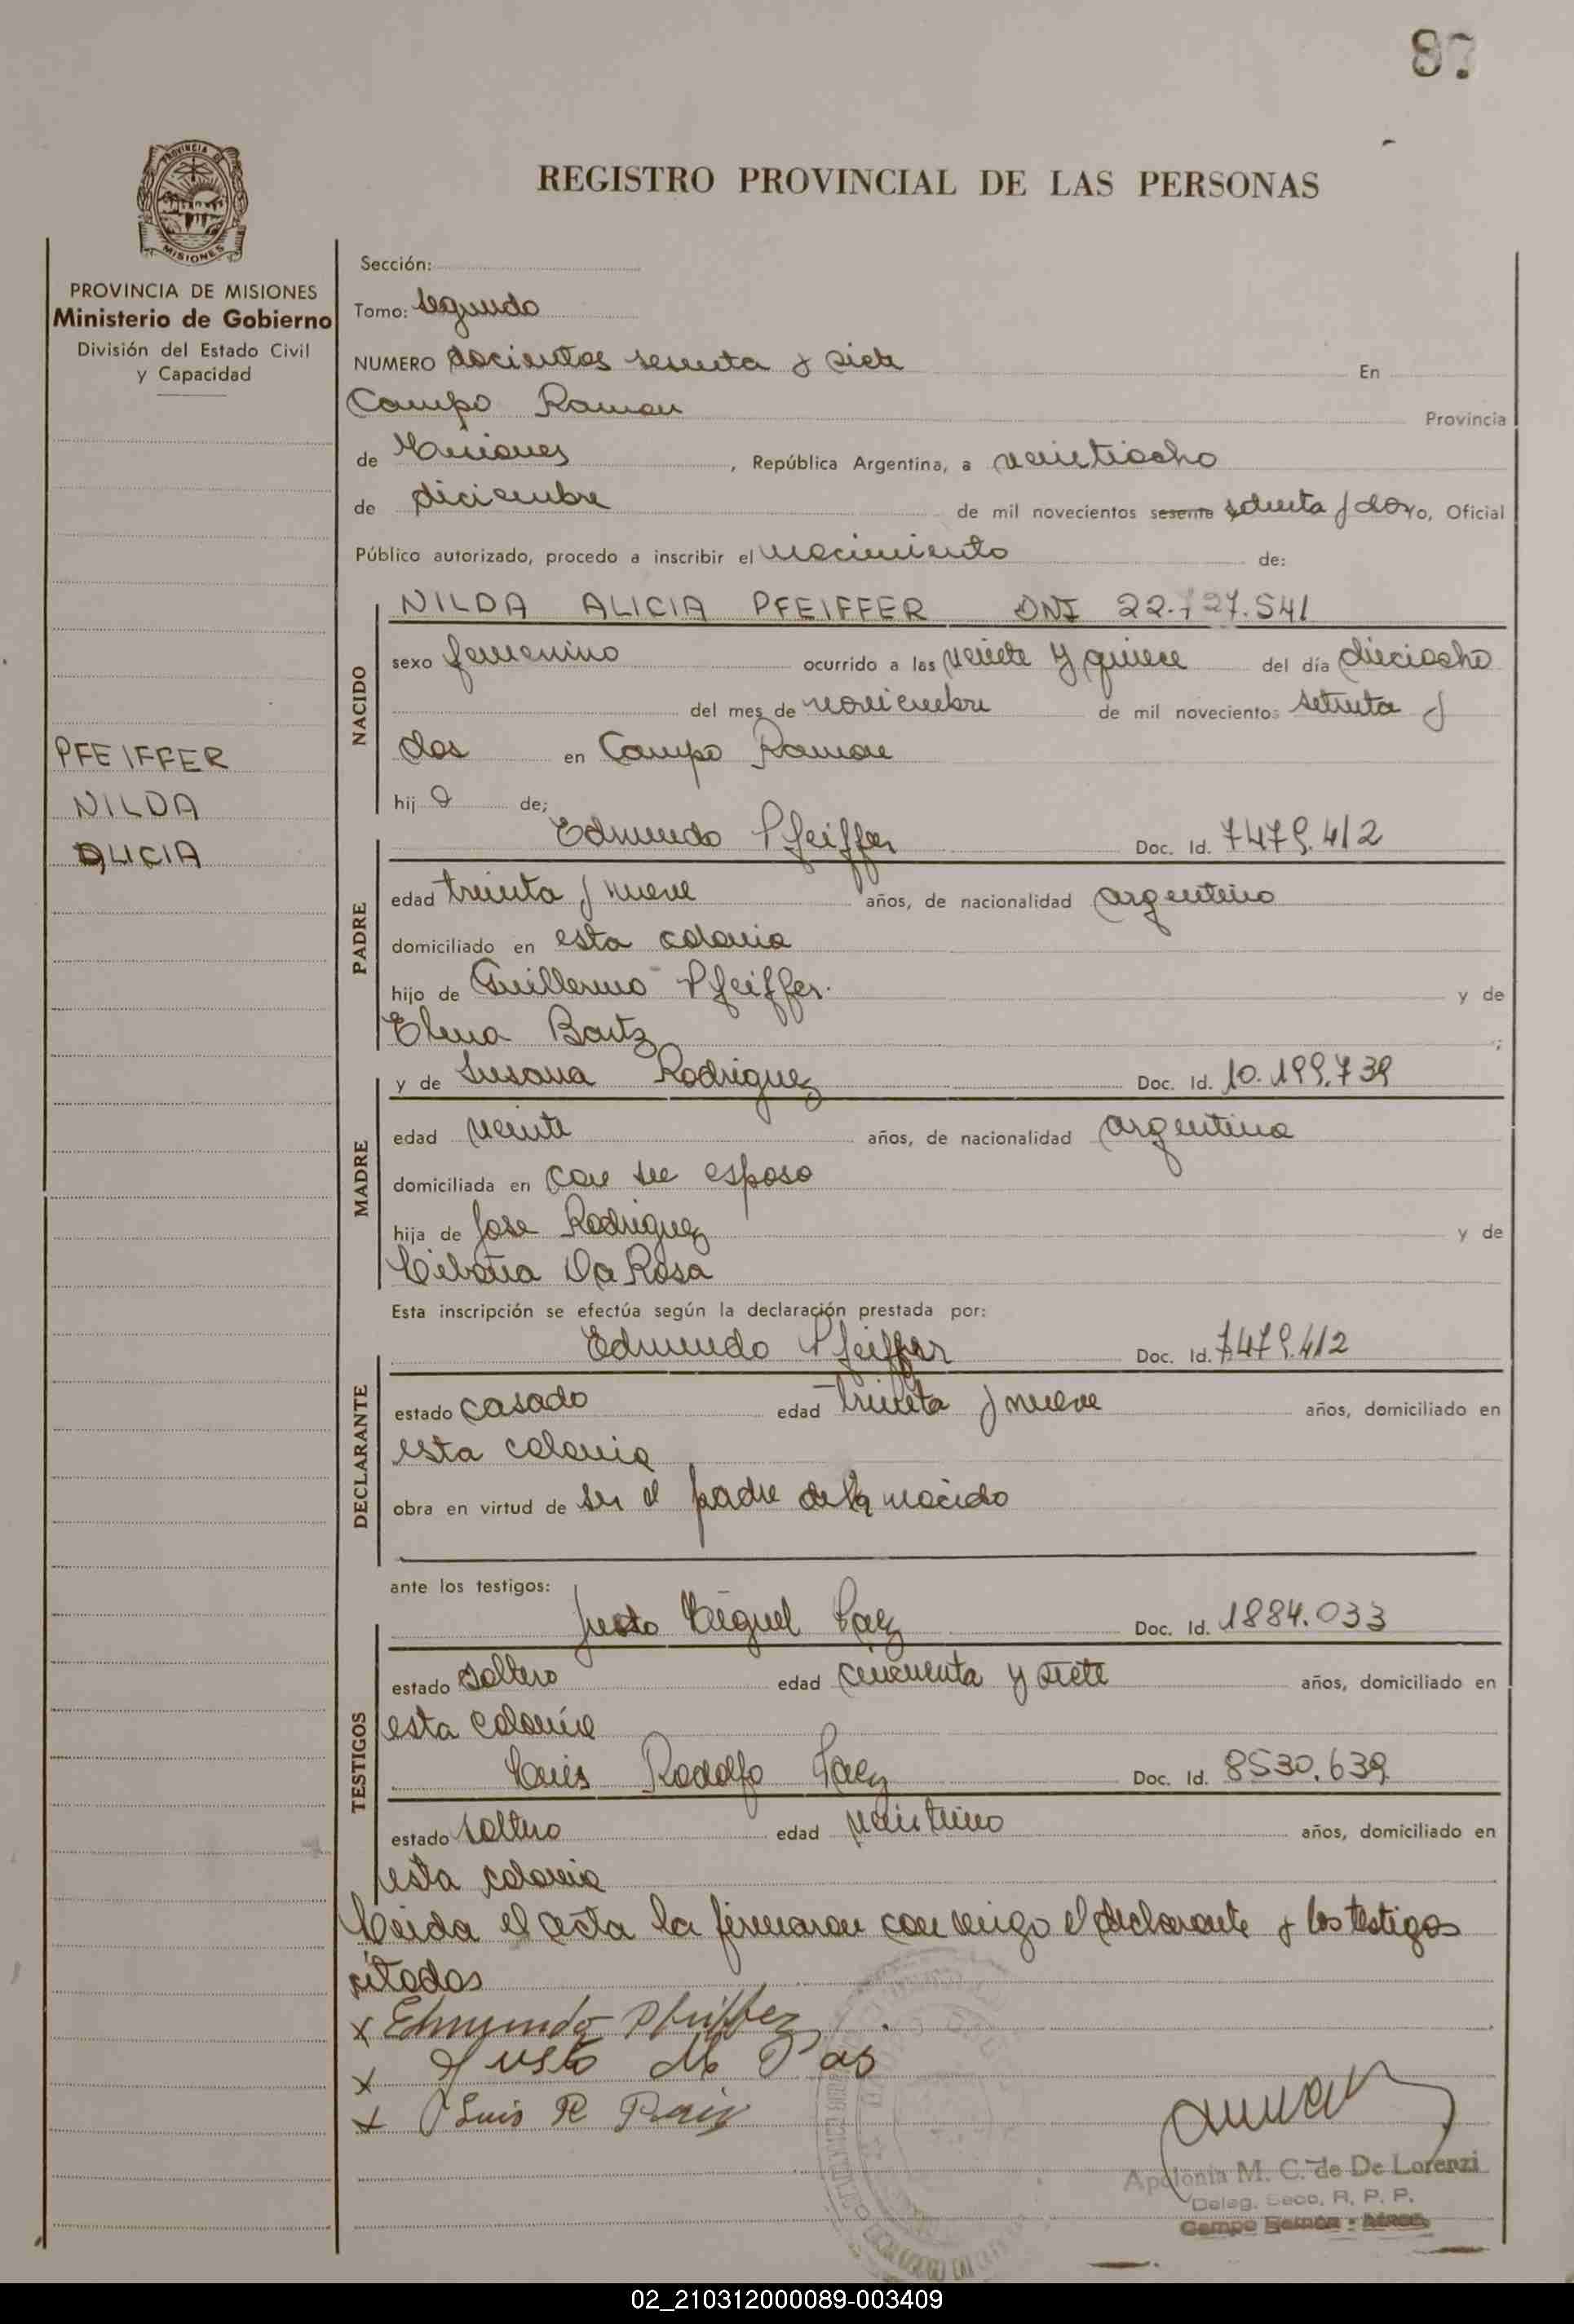 87
REGISTRO PROVINCIAL DE LAS PERSONAS
PROVINCIA DE MISIONES
PROVINCIA DE MISIONES
Ministerio de Gobierno
División del Estado Civil
y Capacidad
PFEIFFER
NILDA
ALICIA
Sección:
Tomo: Segundo
NUMERO docientos sesenta y siete En
Campo Ramon Provincia
de Misiones, República Argentina, a veintiocho
de diciembre de mil novecientos sesenta setenta y dos yo, Oficial
Público autorizado, procedo a inscribir el nacimiento de:
NACIDO
NILDA ALICIA PFEIFFER DNI 22.727.541
sexo femenino ocurrido a las veinte y quince del día dieciocho
del mes de noviembre de mil novecientos setenta y
dos en Campo Ramon
hij a de:
PADRE
Edmundo Pfeiffer Doc. Id. 7479.412
edad treinta y nueve años, de nacionalidad argentino
domiciliado en esta colonia
hijo de Guillermo Pfeiffer. y de
Elena Bartz ;
MADRE
y de Susana Rodriguez Doc. Id. 10.199.739
edad veinte años, de nacionalidad argentina
domiciliada en con su esposo
hija de Jose Rodriguez y de
Da Rosa
Esta inscripción se efectúa según la declaración prestada por:
DECLARANTE
Edmundo Pfeiffer Doc. Id. 7479.412
estado casado edad treinta y nueve años, domiciliado en
esta colonia
obra en virtud de ser el padre de la nacido
ante los testigos:
TESTIGOS
Justo Miguel Paez Doc. Id. 1884.033
estado soltero edad cincuenta y siete años, domiciliado en
esta colonia
Luis Rodolfo Paez Doc. Id. 8530.639
estado soltero edad veintiuno años, domiciliado en
esta colonia
Leida el acta la firmaron con migo el declarante y los testigos
citados
x Edmundo Pfeiffer
x Justo M Pas
x Luis R Paiz
Apolonia M. C. de De Lorenzi
Deleg. Secc. R. P. P.
Campo Ramón - Mnes.
02_210312000089-003409